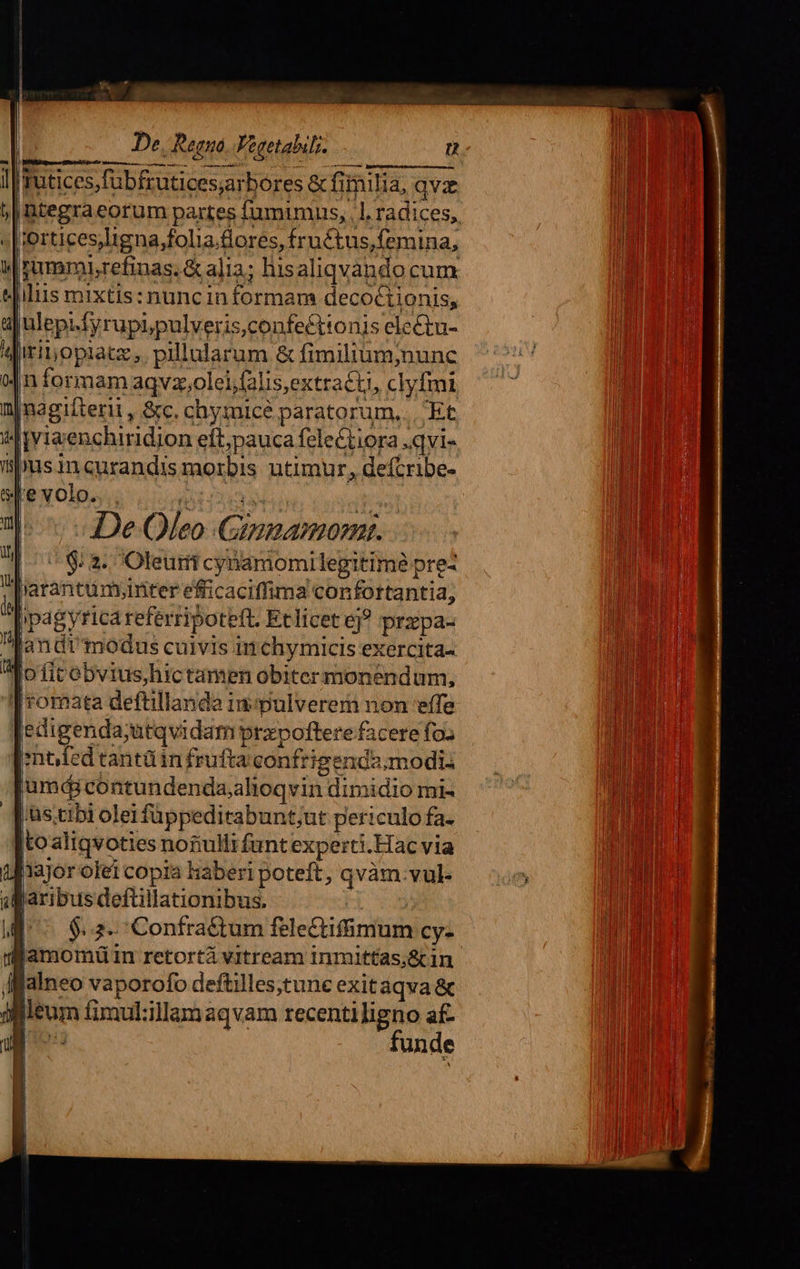 De Regno Vegetabili. 11
frutices,ſubfrutices,arbores & ſimilia, qvæ
ntegra eorum partes ſumimus, l. radices,
cortices,ligna,folia,flores,fructus,ſemina,
gummi,reſinas, & alia; his aliqvando cum
aliis mixtis: nunc in formam decoctionis,
julepi.ſyrupi,pulveris,confectionis electu-
arii,opiatæ, pillularum & ſimilium,nunc
in formam aqvæ,olei,ſalis,extracti, clyſmi
magiſterii, &c. chymicè paratorum, Et
qvia enchiridion eſt,pauca ſelectiora,qvi-
bus in curandis morbis utimur, deſcribe-
re volo.
De Oleo Cinnamomi.
§. 2. Oleum cynamomi legitimè præ-
parantum,inter efficaciſſima confortantia,
panegyrica referri poteſt. Et licet ejꝰ præpa-
andi modus cuivis in chymicis exercita-
to ſit obvius,hic tamen obiter monendum,
aromata deſtillanda in pulverem non eſſe
redigenda,ut qvidam præpoſtere facere ſo-
ent,ſed tantū in fruſta confrigenda,modi-
umq́; contundenda,alioqvin dimidio mi-
nus tibi olei ſuppeditabunt,ut periculo fa-
cto aliqvoties noñulli ſunt experti.Hac via
major olei copia haberi poteſt, qvàm vul-
garibus deſtillationibus.
§. 3. Confractum ſelectiſſimum cy-
namomū in retortā vitream inmittas,& in
balneo vaporoſo deſtilles,tunc exit aqva &
oleum ſimul:illam aqvam recenti ligno aſ-
funde